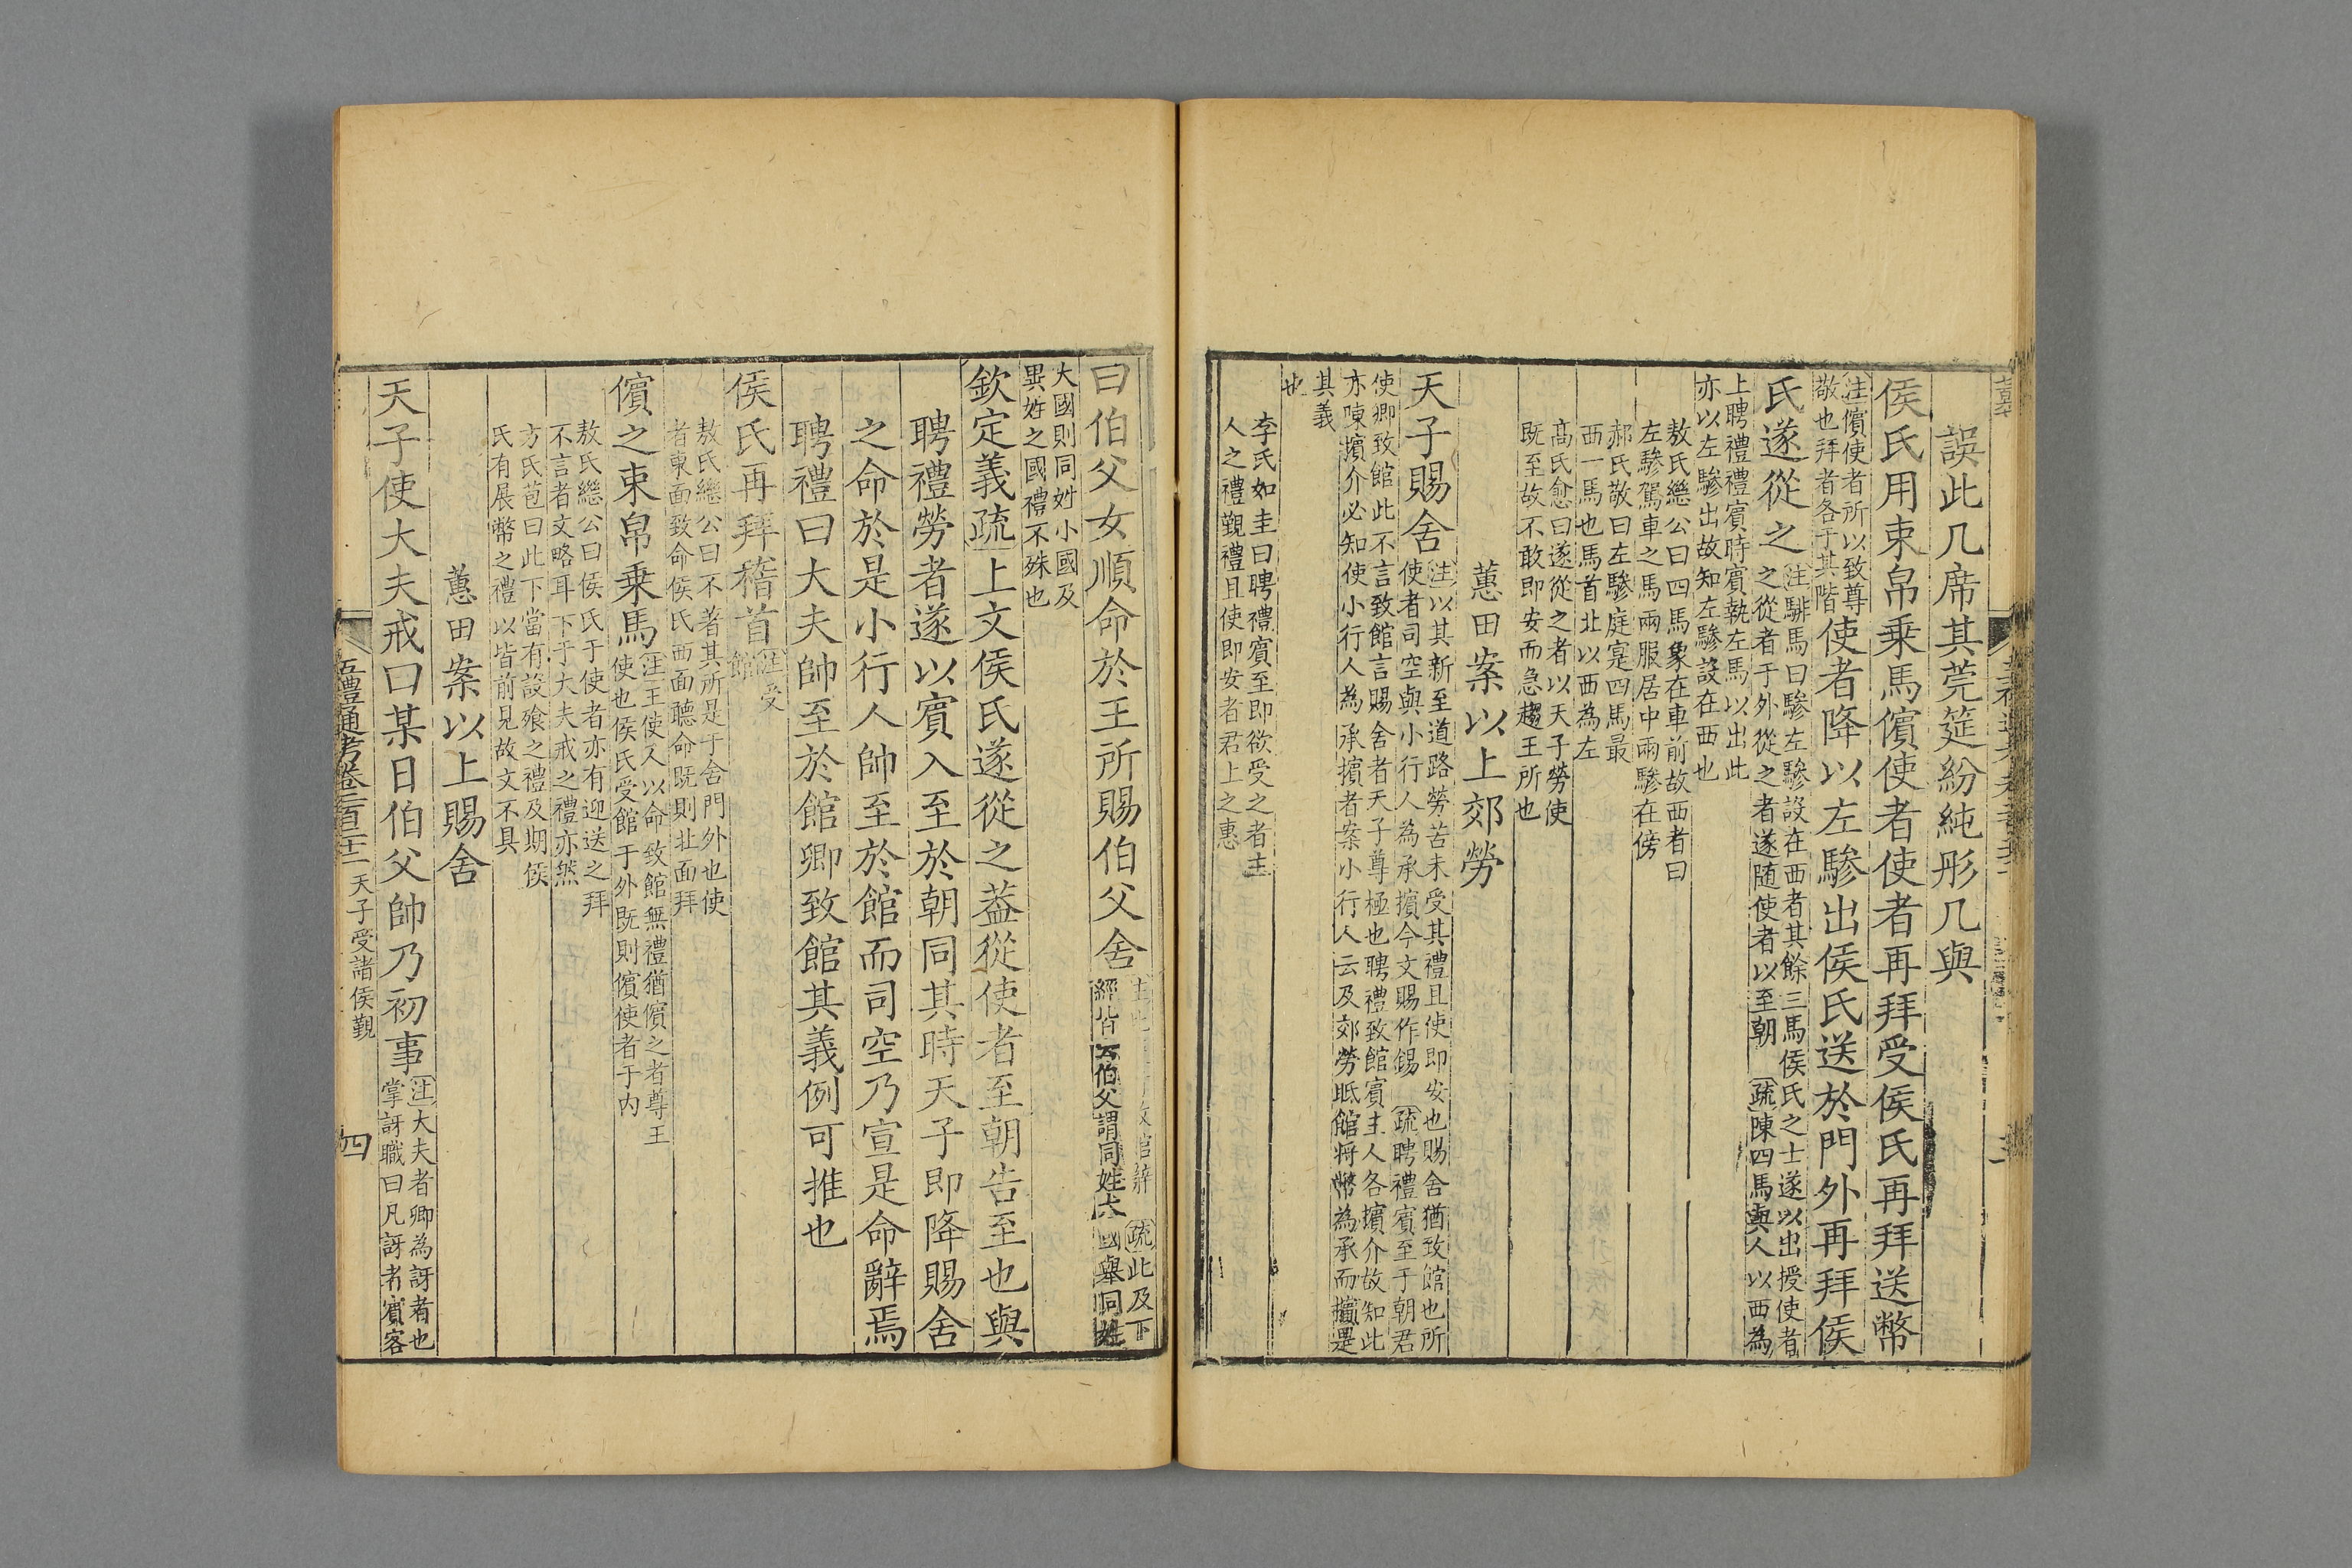 誤此几席其莞筵紛純彤几與
侯氏用束帛乗馬儐使者使者再拜受侯氏再拜送幣
注儐使者所以致尊
敬也拜者各于其階
使者降以左驂出侯氏送於門外再拜侯
氏遂從之
注騑馬曰驂左驂設在西者其餘三馬侯氏之士遂以出授使者
之從者于外從之者遂随使者以至朝 疏陳四馬與人以西為
上聘禮禮賓時賓執左馬以出此
亦以左驂出故知左驂設在西也
敖氏繼公曰四馬象在車前故西者曰
左驂駕車之馬兩服居中兩驂在傍
郝氏敬曰左驂庭寔四馬最
西一馬也馬首北以西為左
高氏愈曰遂從之者以天子勞使
既至故不敢即安而急趨王所也
蕙田案以上郊勞
天子賜舍
注以其新至道路勞苦未受其禮且使即安也賜舍猶致館也所
使者司空與小行人為承擯今文賜作錫 疏聘禮賓至于朝君
使卿致館此不言致館言賜舍者天子尊極也聘禮致館賓主人各擯介故知此
亦陳擯介必知使小行人為承擯者案小行人云及郊勞眡館将幣為承而擯是
其義
也
李氏如圭曰聘禮賓至即欲受之者主
人之禮覲禮且使即安者君上之惠
曰伯父女順命於王所賜伯父舍
疏此及下
經皆云伯父謂同姓大國舉同姓
大國則同姓小國及
異姓之國禮不殊也
欽定義疏上文侯氏遂從之蓋從使者至朝告至也與
聘禮勞者遂以賓入至於朝同其時天子即降賜舍
之命於是小行人帥至於館而司空乃宣是命辭焉
聘禮曰大夫帥至於館卿致館其義例可推也
侯氏再拜稽首
注受
館
敖氏繼公曰不著其所是于舍門外也使
者東面致命侯氏西面聽命既則北面拜
儐之束帛乗馬
注王使人以命致館無禮猶儐之者尊王
使也侯氏受館于外既則儐使者于内
敖氏繼公曰侯氏于使者亦有迎送之拜
不言者文略耳下于大夫戒之禮亦然
方氏苞曰此下當有設飱之禮及期侯
氏有展幣之禮以皆前見故文不具
蕙田案以上賜舍
天子使大夫戒曰某日伯父帥乃初事
注大夫者卿為訝者也
掌訝職曰凡訝者賓客
五禮通考卷二百二十二 天子受諸侯覲 四